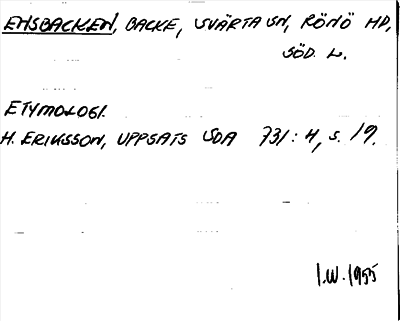 EHSBACKEN, BACKE, SVÄRTA SN, RÖNÖ HD,
SÖD. L.
ETYMOLOGI.
H. ERIKSSON, UPPSATS SOA 731:4, s. 19.
I.W. 1955